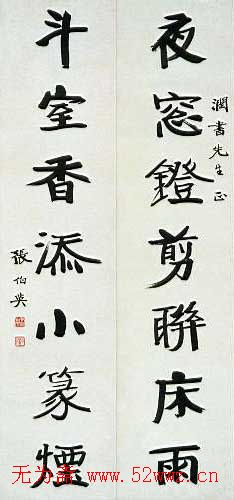 夜窓鐙剪聯床雨
潤書先生正
斗室香添小篆煙
張伯英
无为斋 www.52wwz.cn